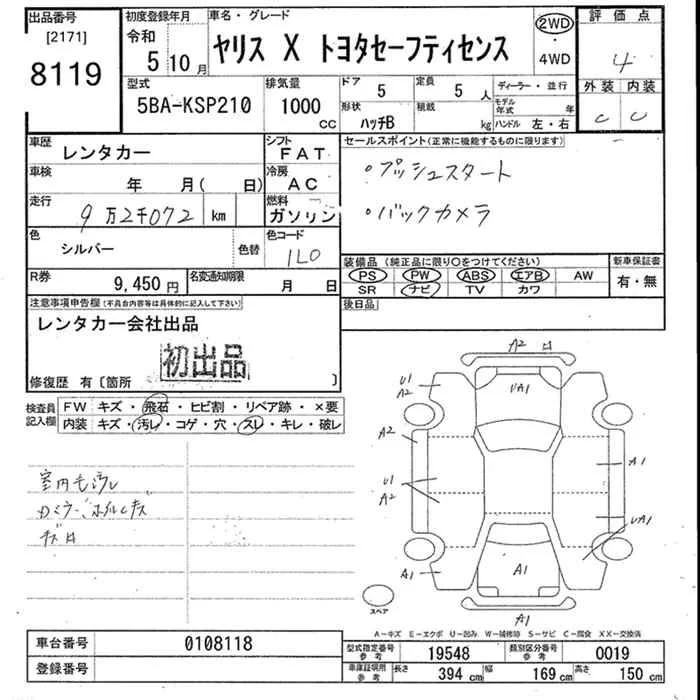 出品番号
[2171]
8119
初度登録年月
令和
5 10 月
車名・グレード
ヤリス X トヨタセーフティセンス
2WD
・
4WD
評価点
4
外装 内装
C C
型式
5BA-KSP210
排気量
1000 CC
ドア
5
定員
5 人
形状
ハッチB
積載
kg
ディーラー・並行
モデル年式 年
ハンドル 左・右
車歴
レンタカー
シフト
FAT
セールスポイント(正常に機能するものに限ります)
・プッシュスタート
・バックカメラ
車検
年 月( 日)
冷房
AC
走行
9万2千072 km
燃料
ガソリン
色
シルバー
色替
色コード
1L0
R券
9,450 円
名変通知期限
月 日
装備品(純正品に限り○をつけてください)
PS PW ABS エアB AW
SR ナビ TV カワ
新車保証書
有・無
後日品
注意事項申告欄(不具合内容等は具体的に記入して下さい)
レンタカー会社出品
初出品
修復歴 有〔箇所 〕
検査員記入欄
FW キズ・飛石・ヒビ割・リペア跡・×要
内装 キズ・汚レ・コゲ・穴・スレ・キレ・破レ
室内毛汚レ
A2
U1
A2
UA1
A2
U1
A2
A1
UA1
A1
A1
A1
スペア
A-キズ E-エクボ U-凹み W-補修跡 S-サビ C-腐食 XX-交換済
車台番号
0108118
登録番号
型式指定番号 参考
19548
類別区分番号 参考
0019
車庫証明用 参考
長さ 394 cm
幅 169 cm
高さ 150 cm